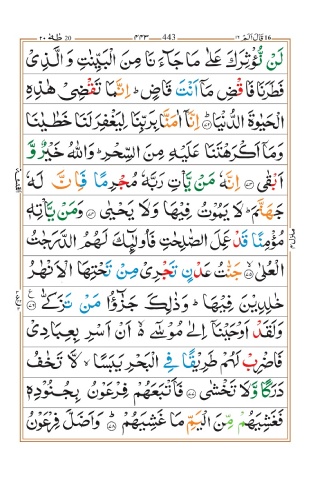 طٰهٰ ٢٠ 20 ٤٤٣ 443 قَالَ اَلَمْ ١٦ 16
لَنْ نُّؤْثِرَكَ عَلٰى مَا جَآءَنَا مِنَ الْبَيِّنٰتِ وَالَّذِىْ
فَطَرَنَا فَاقْضِ مَآ اَنْتَ قَاضٍ ؕ اِنَّمَا تَقْضِىْ هٰذِهِ
الْحَيٰوةَ الدُّنْيَا ؕ ﴿۷۲﴾ اِنَّاۤ اٰمَنَّا بِرَبِّنَا لِيَغْفِرَ لَنَا خَطٰيٰنَا
وَمَاۤ اَكْرَهْتَنَا عَلَيْهِ مِنَ السِّحْرِ ؕ وَاللّٰهُ خَيْرٌ وَّ
اَبْقٰى ﴿۷۳﴾ اِنَّهٗ مَنْ يَّاْتِ رَبَّهٗ مُجْرِمًا فَاِنَّ لَهٗ
جَهَنَّمَ ؕ لَا يَمُوْتُ فِيْهَا وَلَا يَحْيٰى ﴿۷۴﴾ وَمَنْ يَّاْتِهٖ
مُؤْمِنًا قَدْ عَمِلَ الصّٰلِحٰتِ فَاُولٰٓئِكَ لَهُمُ الدَّرَجٰتُ
الْعُلٰى ﴿۷۵﴾ جَنّٰتُ عَدْنٍ تَجْرِىْ مِنْ تَحْتِهَا الْاَنْهٰرُ
خٰلِدِيْنَ فِيْهَا ؕ وَذٰلِكَ جَزٰٓؤُا مَنْ تَزَكّٰى ﴿۷۶﴾ ع
وَلَقَدْ اَوْحَيْنَاۤ اِلٰى مُوْسٰٓى ۙ اَنْ اَسْرِ بِعِبَادِىْ
فَاضْرِبْ لَهُمْ طَرِيْقًا فِى الْبَحْرِ يَبَسًا ۙ لَّا تَخٰفُ
دَرَكًا وَّلَا تَخْشٰى ﴿۷۷﴾ فَاَتْبَعَهُمْ فِرْعَوْنُ بِجُنُوْدِهٖ
فَغَشِيَهُمْ مِّنَ الْيَمِّ مَا غَشِيَهُمْ ؕ ﴿۷۸﴾ وَاَضَلَّ فِرْعَوْنُ